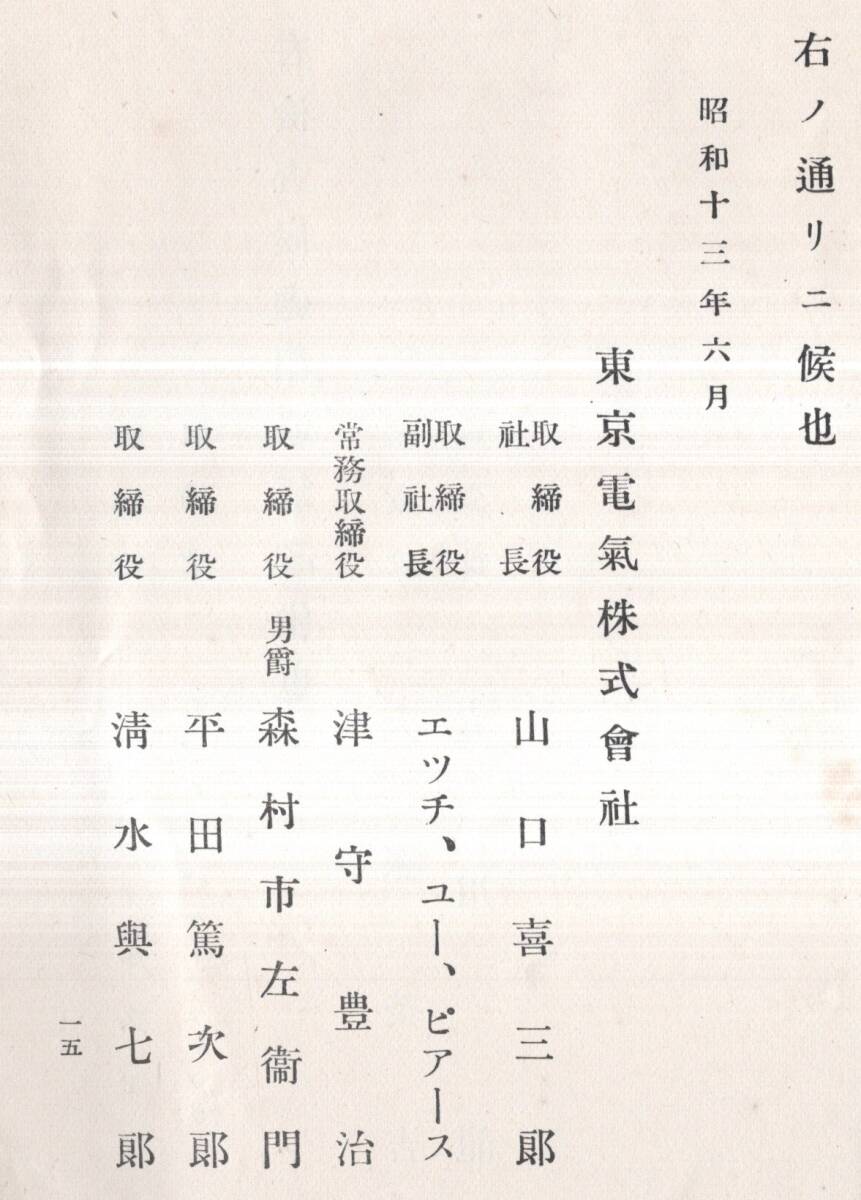 右ノ通リニ候也
昭和十三年六月
東京電氣株式會社
取締役社長 山口喜三郎
取締役副社長 エツチ、ユー、ピアース
常務取締役 津守豊治
取締役 男爵 森村市左衞門
取締役 平田篤次郎
取締役 淸水與七郎
一五